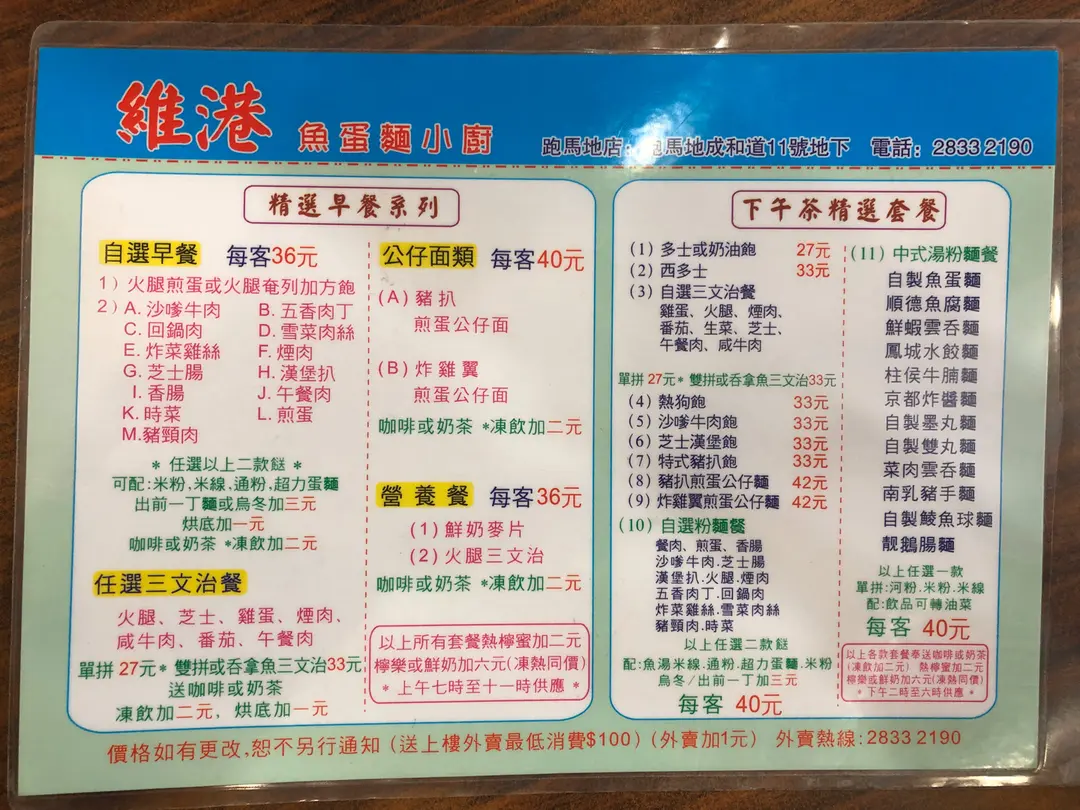 維港 魚蛋麵小廚
跑馬地店：跑馬地成和道11號地下 電話：2833 2190
精選早餐系列
自選早餐 每客36元
1）火腿煎蛋或火腿奄列加方飽
2）A. 沙嗲牛肉 B. 五香肉丁
C. 回鍋肉 D. 雪菜肉絲
E. 炸菜雞絲 F. 煙肉
G. 芝士腸 H. 漢堡扒
I. 香腸 J. 午餐肉
K. 時菜 L. 煎蛋
M.豬頸肉
* 任選以上二款餸 *
可配:米粉.米線.通粉.超力蛋麵
出前一丁麵或烏冬加三元
烘底加一元
咖啡或奶茶 *凍飲加二元
任選三文治餐
火腿、芝士、雞蛋、煙肉、
咸牛肉、番茄、午餐肉
單拼 27元* 雙拼或吞拿魚三文治33元
送咖啡或奶茶
凍飲加二元, 烘底加一元
公仔面類 每客40元
(A) 豬扒
煎蛋公仔面
(B) 炸雞翼
煎蛋公仔面
咖啡或奶茶 *凍飲加二元
營養餐 每客36元
(1) 鮮奶麥片
(2) 火腿三文治
咖啡或奶茶 *凍飲加二元
以上所有套餐熱檸蜜加二元
檸樂或鮮奶加六元(凍熱同價)
* 上午七時至十一時供應 *
下午茶精選套餐
(1) 多士或奶油飽 27元
(2) 西多士 33元
(3) 自選三文治餐
雞蛋、火腿、煙肉、
番茄、生菜、芝士、
午餐肉、咸牛肉
單拼 27元* 雙拼或吞拿魚三文治33元
(4) 熱狗飽 33元
(5) 沙嗲牛肉飽 33元
(6) 芝士漢堡飽 33元
(7) 特式豬扒飽 33元
(8) 豬扒煎蛋公仔麵 42元
(9) 炸雞翼煎蛋公仔麵 42元
(10) 自選粉麵餐
餐肉、煎蛋、香腸
沙嗲牛肉.芝士腸
漢堡扒.火腿.煙肉
五香肉丁.回鍋肉
炸菜雞絲.雪菜肉絲
豬頸肉.時菜
以上任選二款餸
配:魚湯米線.通粉.超力蛋麵.米粉
烏冬/出前一丁加三元
每客 40元
(11) 中式湯粉麵餐
自製魚蛋麵
順德魚腐麵
鮮蝦雲吞麵
鳳城水餃麵
柱侯牛腩麵
京都炸醬麵
自製墨丸麵
自製雙丸麵
菜肉雲吞麵
南乳豬手麵
自製鯪魚球麵
靓鵝腸麵
以上任選一款
單拼:河粉.米粉.米線
配:飲品可轉油菜
每客 40元
以上各款套餐奉送咖啡或奶茶
(凍飲加二元) 熱檸蜜加二元
檸樂或鮮奶加六元(凍熱同價)
* 下午二時至六時供應 *
價格如有更改,恕不另行通知 (送上樓外賣最低消費$100) (外賣加1元) 外賣熱線:2833 2190